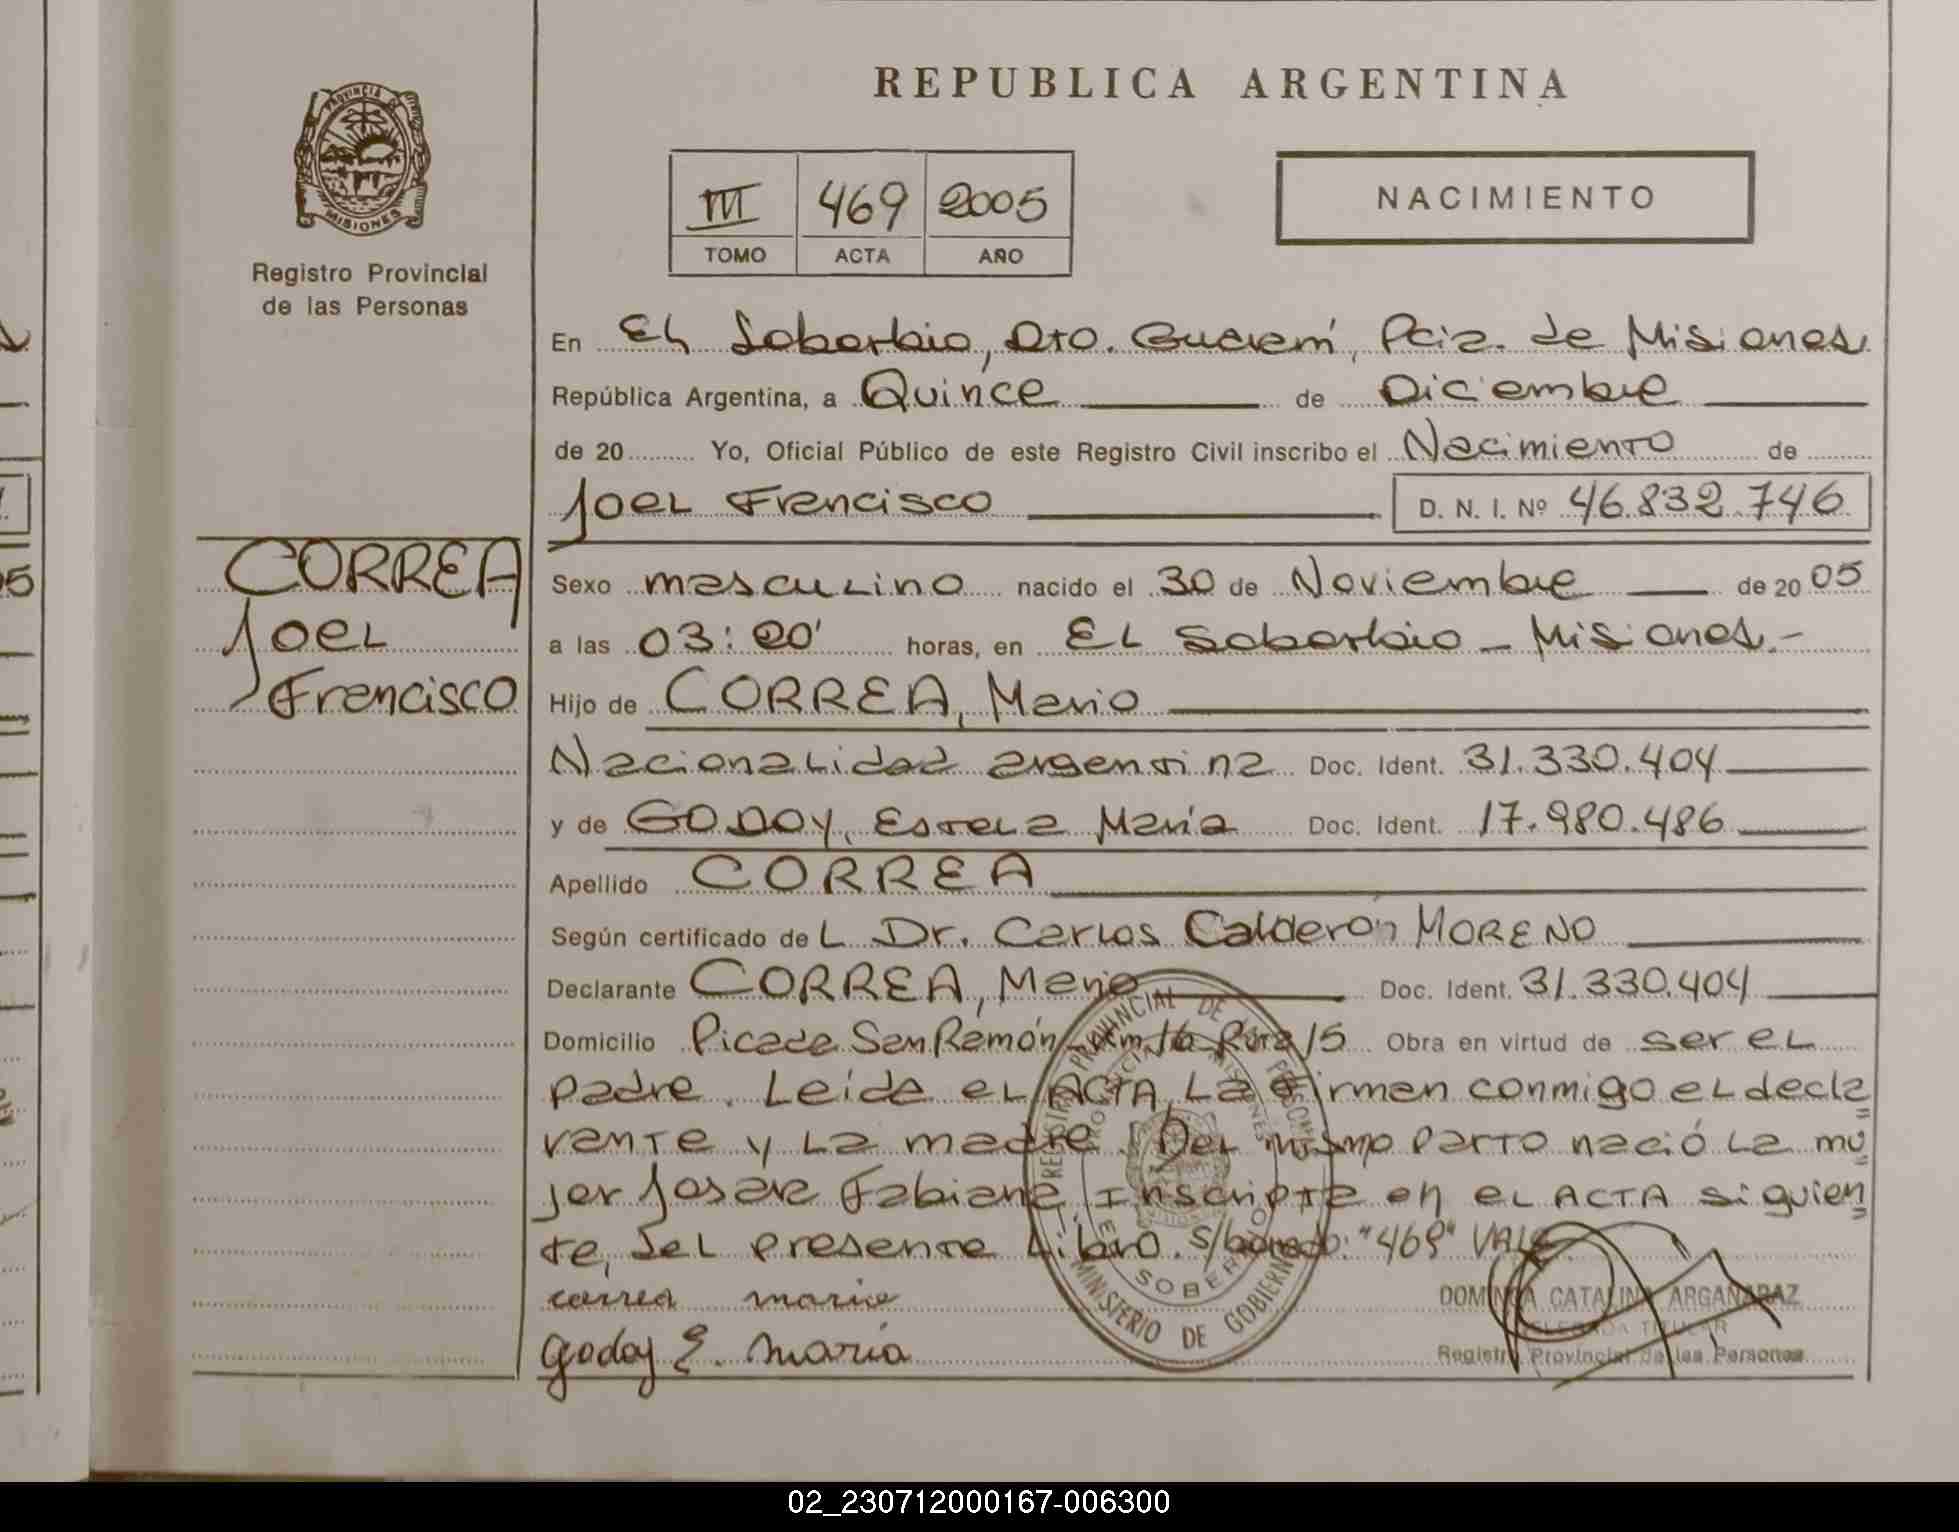 REPUBLICA ARGENTINA
PROVINCIA DE
MISIONES
Registro Provincial
de las Personas
III 469 2005
TOMO ACTA AÑO
NACIMIENTO
En El Soberbio, Dto. Guaraní, Pcia. de Misiones
República Argentina, a Quince de Diciembre
de 20 Yo, Oficial Público de este Registro Civil inscribo el Nacimiento de
Joel Francisco D. N. I. Nº 46.832.746
CORREA
Joel
Francisco
Sexo masculino nacido el 30 de Noviembre de 20 05
a las 03:20' horas, en El Soberbio - Misiones.-
Hijo de CORREA, Mario
Nacionalidad argentina Doc. Ident. 31.330.404
y de GODOY, Estela María Doc. Ident. 17.980.486
Apellido CORREA
Según certificado de L Dr. Carlos Calderón MORENO
Declarante CORREA, Mario Doc. Ident. 31.330.404
Domicilio Picada San Ramón - Km 16 Ruta 15 Obra en virtud de ser el
padre. Leída el ACTA, La Firman conmigo el decla
rante y La madre. Del mismo parto nació La mu
jer Fabiana Inscripta en el ACTA siguien
te, del presente Libro. S/borrado: "469" VALE
correa mario
Godoy E. María
REGISTRO PROVINCIAL DE LAS PERSONAS
MINISTERIO DE GOBIERNO
EL SOBERBIO
DOMINGA CATALINA ARGAÑARAZ
DELEGADA TITULAR
Registro Provincial de las Personas
02_230712000167-006300